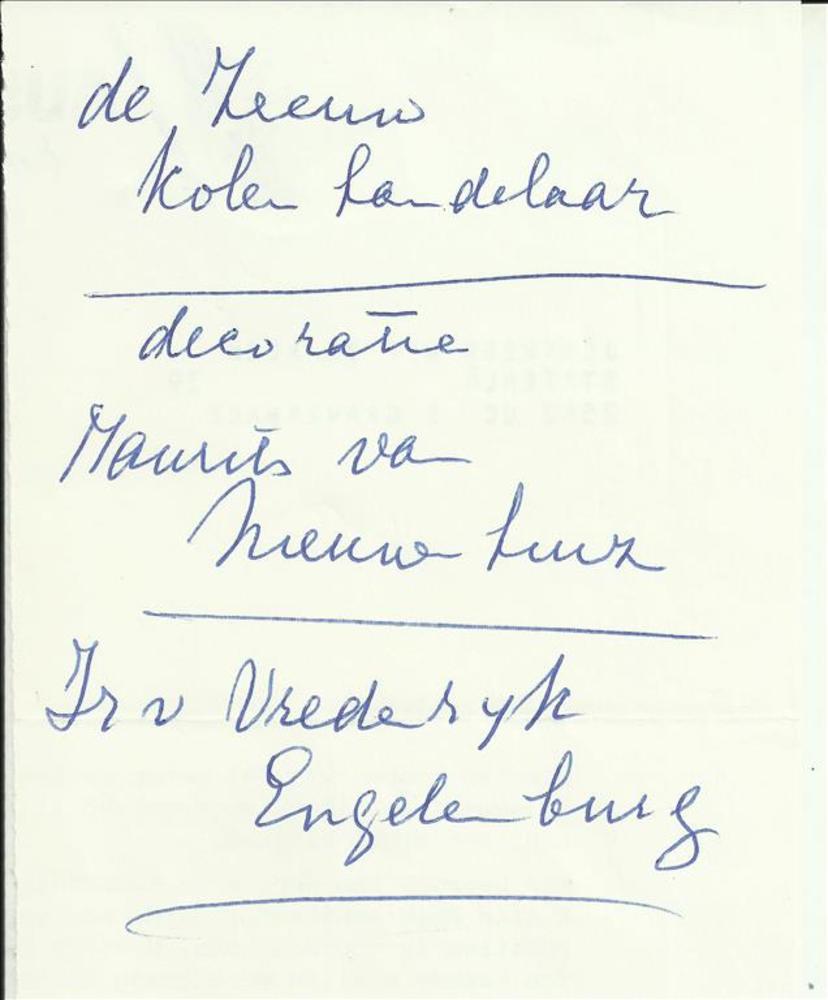 de Zeeuw
Kolen handelaar
decoratie
Maurits van
Nieuwen huiz
Ir v Vrederyk
Engelenburg